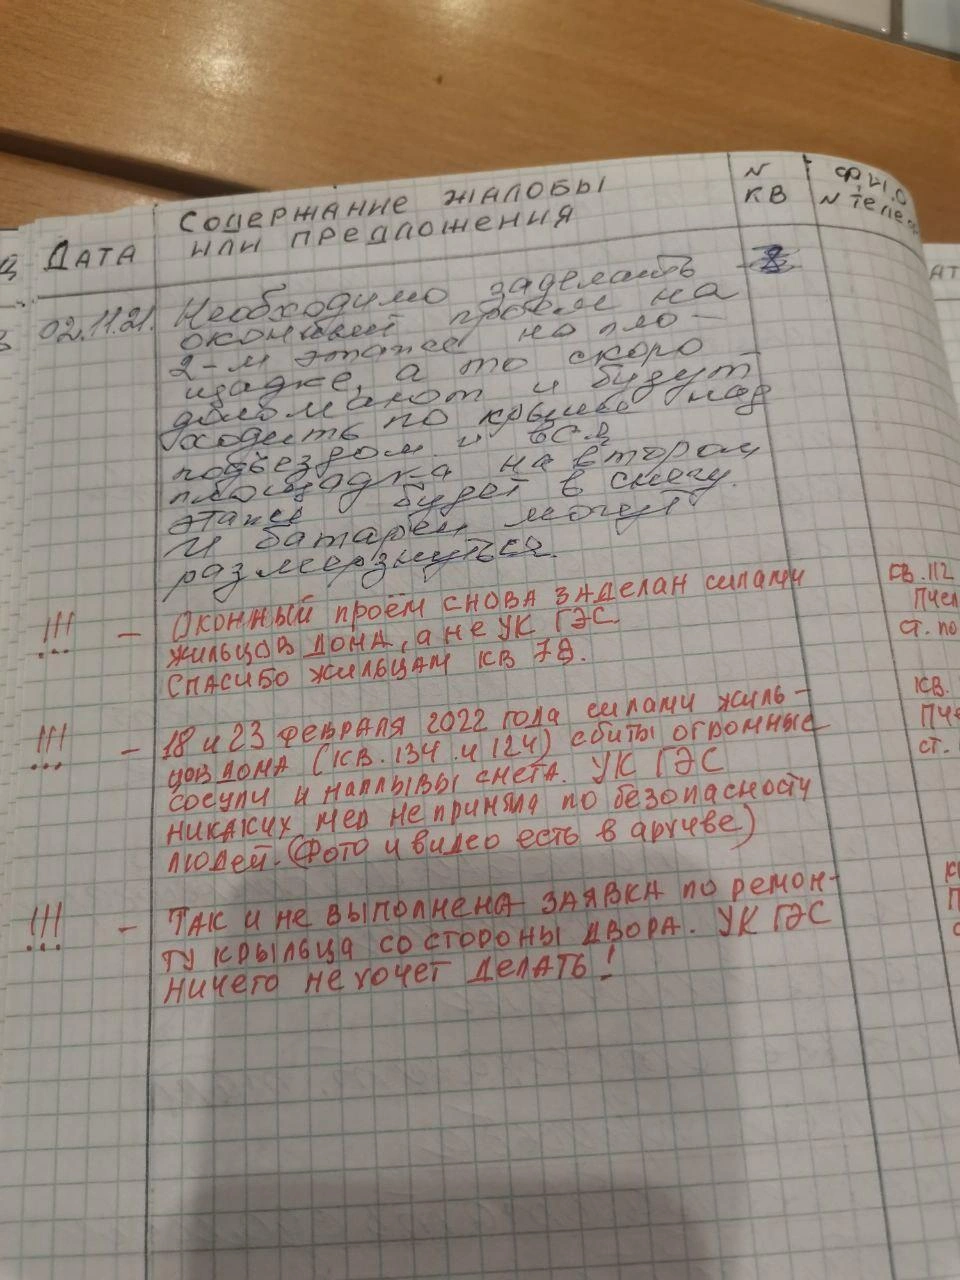 ДАТА
СОДЕРЖАНИЕ ЖАЛОБЫ
ИЛИ ПРЕДЛОЖЕНИЯ
N
КВ
Ф.И.О
N телеф
02.11.21.
Необходимо заделать
оконный проём на
2-м этаже на пло-
щадке, а то скоро
доломают и будут
ходить по крыше над
подъездом и вся
площадка на втором
этаже будет в снегу.
И батареи могут
размерзнуться.
!!! - Оконный проём снова заделан силами
жильцов дома, а не УК ГЭС
Спасибо жильцам кв 78.
кв. 112
Пчел
ст. по
!!! - 18 и 23 февраля 2022 года силами жиль-
цов дома (кв. 134 и 124) сбиты огромные
сосули и наплывы снега. УК ГЭС
никаких мер не приняла по безопасности
людей. (Фото и видео есть в архиве)
кв.
Пче
ст.
!!! - Так и не выполнена заявка по ремон-
ту крыльца со стороны двора. УК ГЭС
ничего не хочет делать!